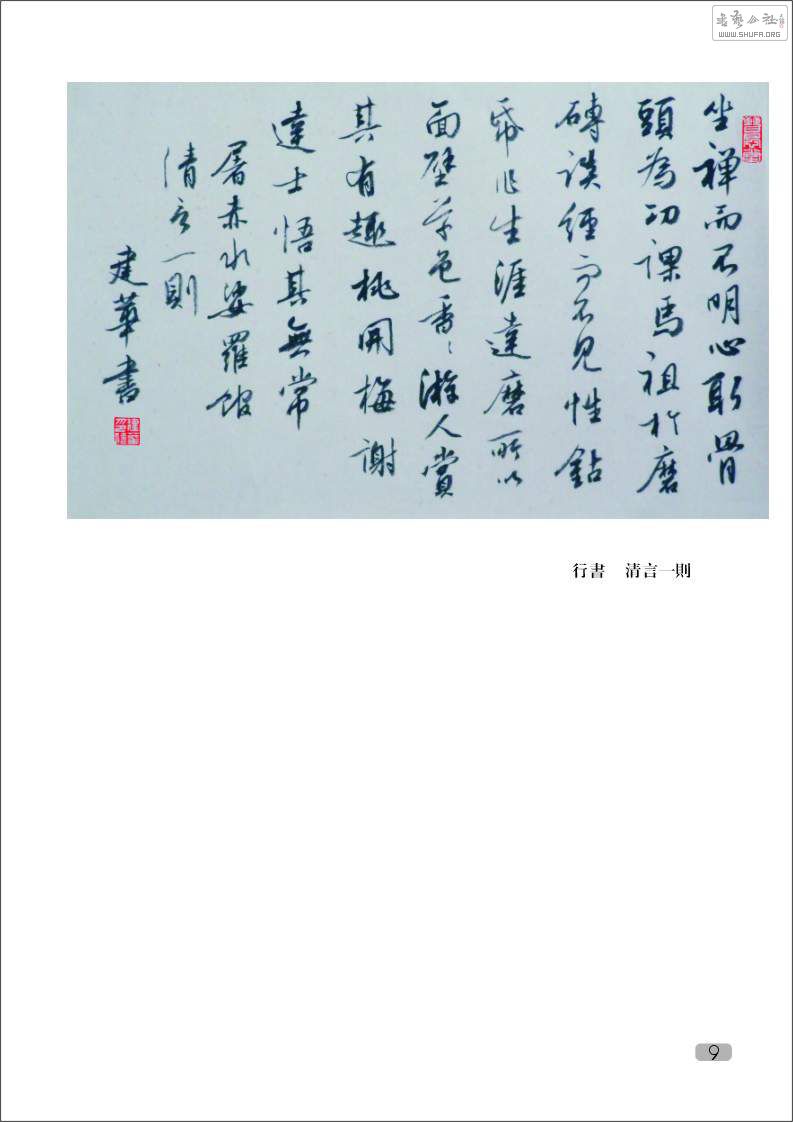 書藝公社
WWW.SHUFA.ORG
坐禪而不明心取骨
頭為功課馬祖於磨
磚談經而不見性鑽
紙作生涯達磨所以
面壁草色香〻游人賞
其有趣桃開梅謝
達士悟其無常
屠赤水娑羅館
清言一則
建華書
行書 清言一則
9